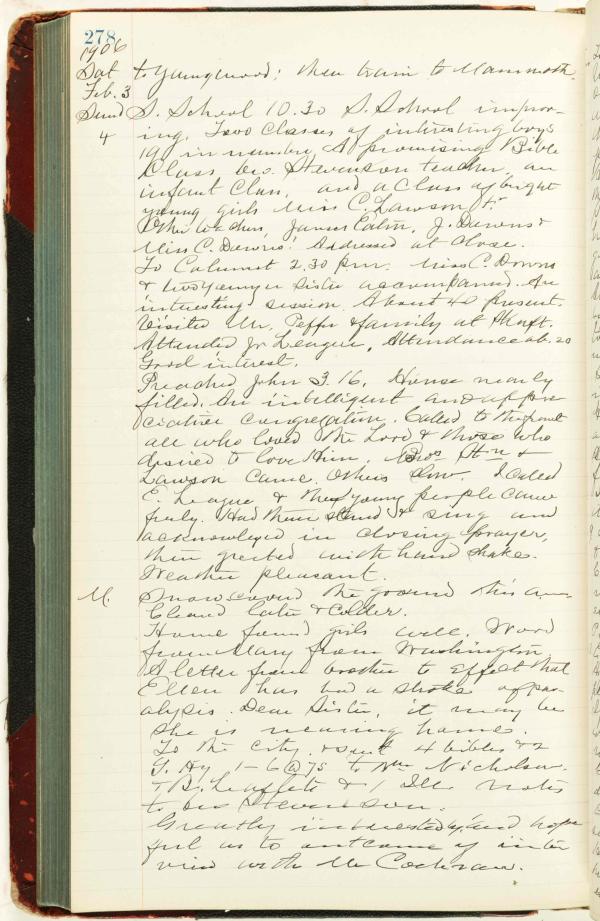 278
1906
Sat to Youngwood; then train to Mammoth
Feb. 3
Sund S. School 10.30 S. School improv-
4 ing. Two Classes of interesting boys
19 in number. A promising Bible
Class, Bro. Stevenson teacher, an
infant Class, and a Class of bright
young girls Miss C. Lawson tr.
Other teachers, James Eaton, J. Downs &
Miss C. Downs. Addressed at close.
To Calumet 2.30 P.m. Miss C. Downs
& two younger sister accompanied. An
interesting session. About 40 present.
Visited Mr. Peffer & family at
Attended Jr League, Attendance ab. 20
Good interest.
Preached John 3.16. House nearly
filled. An intelligent and appre
ciative congregation. Called to the front
all who loved the Lord & those who
desired to love Him. Bros Stn &
Lawson came. Others slow. I called
E. League & the young people came
freely. Had them stand & sing and
acknowledged in closing prayer,
then greeted with hand shake.
Weather pleasant.
M. Snow covered the ground this a.m.
Cleard later & colder.
Home found girls well. Word
from Mary from Washington
A letter from brother to effect that
Ellen has had a stroke of par-
alysis. Dear Sister, it may be
she is nearing home.
To the City & sent 4 bibles & 2
G. Hy. 1-6 @ 75 to Wm Nicholson.
+ B. Leaflets & 1 Ill. Notes
to Bro Stevenson.
Greatly interested and hope
ful as to outcome of inter
view with Mr Cochran.